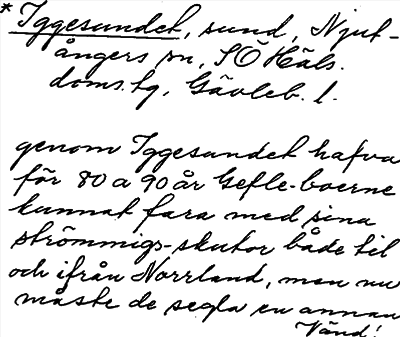 * Iggesundet, sund, Njut-
ångers sn, SÖ Häls.
doms.tg, Gävleb. l.
genom Iggesundet hafva
för 80 a 90 år Gefle-boerne
kunnat fara med sina
strömmigs-skutor både til
och ifrån Norrland, men nu
måste de segla en annan
Vänd!